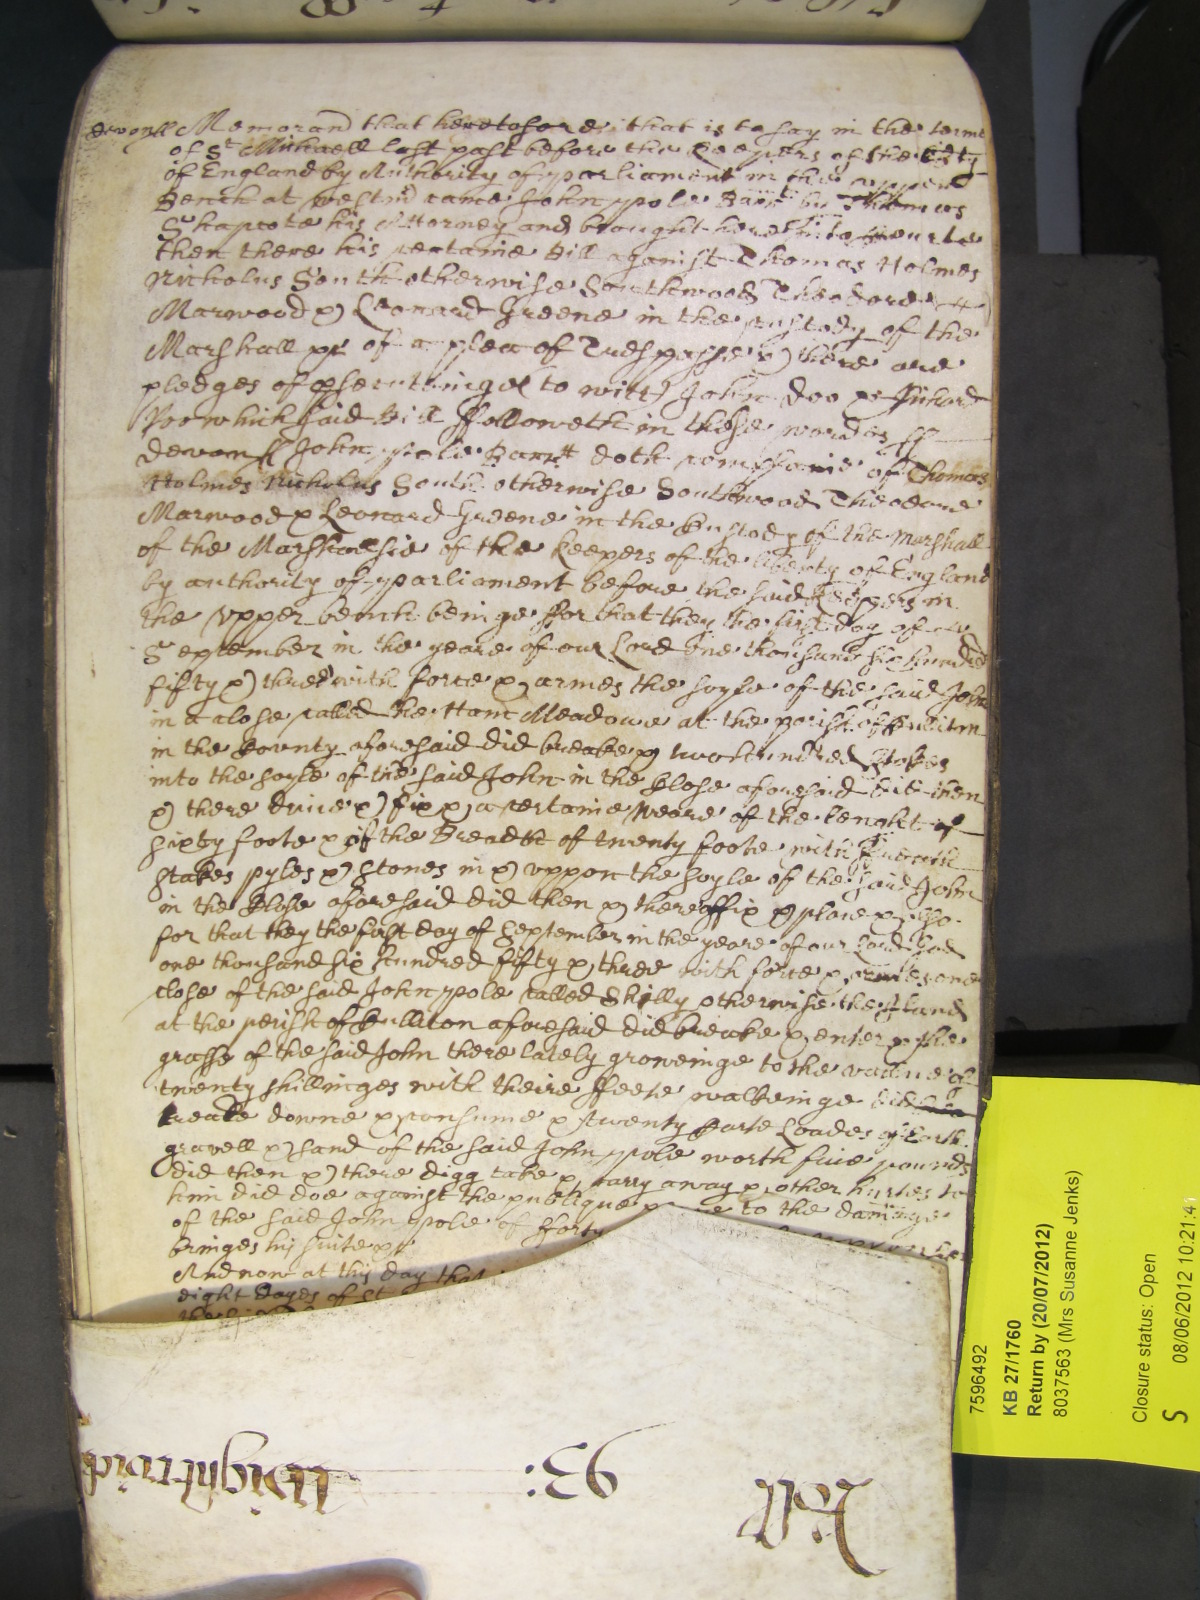 devonss Memorand that heretofore that is to say in the terme
of St Michaell last past before the Keepers of the libty
of England by Authority of parliament in the upper
Bench at westmr came John Pole Barrt by Thomas
Shapcote his Attorney and brought here into Courte
then there his certaine Bill against Thomas Holmes
Nicholas South otherwise Southwood Theodore
Marwood & Leonard Greene in the custody of the
Marshall &c of a plea of Trespasse & there are
pledges of psecutinge (to witt) John Doo & Richard
Roo which said Bill ffolloweth in these words ss
devonss John Pole Barrtt doth complaine of Thomas
Holmes Nicholas South otherwise Southwood Theodore
Marwood & Leonard Greene in the Custody of the Marshall
of the Marshalsie of the Keepers of the liberty of England
by authority of parliament before the said Keepers in
the Upper bench beinge ffor that they the first day of
September in the yeare of our Lord One thousand six hundred
fifty & three with force & armes the soyle of the said John
in a close called the Ham Meadowe at the parish of Culliton
in the County aforesaid did breake & two hundred Stakes
into the soyle of the said John in the Close aforesaid did then
& there drive & fix & a certaine Weare of the lenght of
sixty foote & of the Breadth of twenty foote with
stakes pyles & stones in & uppon the soyle of the said John
in the Close aforesaid did then & there affix & place & also
for that they the first day of September in the yeare of our Lord God
one thousand six hundred fifty & three with force & armes one
close of the said John Pole called Skilly otherwise the Iland
at the perish of Culliton aforesaid did breake & enter & the
grasse of the said John there lately groweinge to the vallue of
twenty shillinges with theire ffeete walkeinge did
treade downe & consume & twenty Carte Loades of Earth
gravell & sand of the said John Pole worth five pounds
did then & there digg take & carry away & other hurtes to
him did doe against the publique to the damage
of the said John Pole of fforty
bringes his suite &c
And now at this day that
eight dayes of St
Roll 93: Wightwick
7596492
KB 27/1760
Return by (20/07/2012)
8037563 (Mrs Susanne Jenks)
Closure status: Open
S 08/06/2012 10:21:4